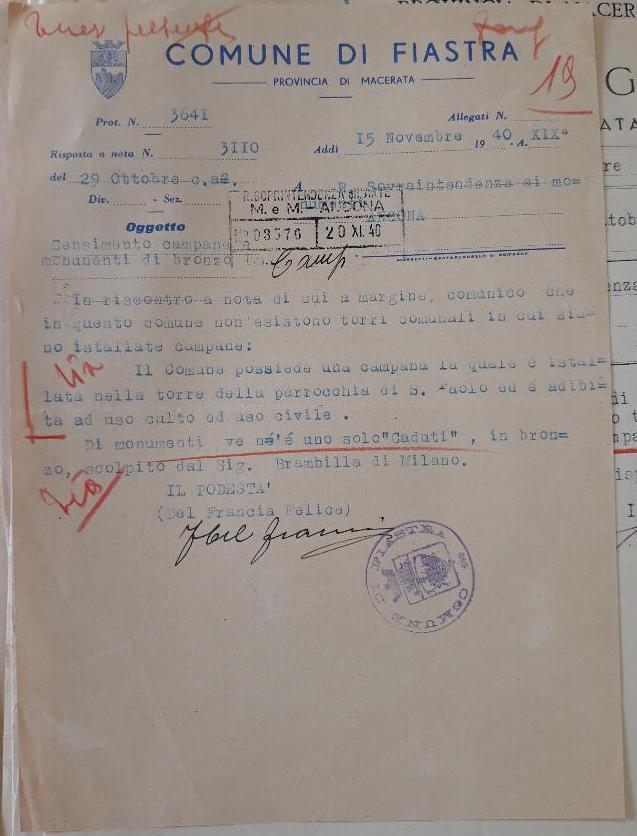 COMUNE DI FIASTRA
PROVINCIA DI MACERATA
19
Prot. N. 3641
Allegati N.
Risposta a nota N. 3110
Addì 15 Novembre 1940 A. XIX°
del 29 Ottobre c.a.
Div. - Sez.
A R. Sovraintendenza ai mo=
ANCONA
R. SOPRINTENDENZA
M. e M. - ANCONA
N° 03576 20 XI. 40
Oggetto
Censimento campane e
monumenti di bronzo
Camp.
In riscontro a nota di cui a margine, comunico che
in questo comune non'esistono torri comunali in cui sia=
no istallate campane:
Il Comune possiede una campana la quale é istal=
lata nella torre della parrocchia di S. Paolo ed é adibi=
ta ad uso culto ed uso civile .
Di monumenti ve né'é uno solo"Caduti" , in bron=
zo, scolpito dal Sig. Brambilla di Milano.
IL PODESTA'
(Del Francia Felice)
COMUNE DI FIASTRA